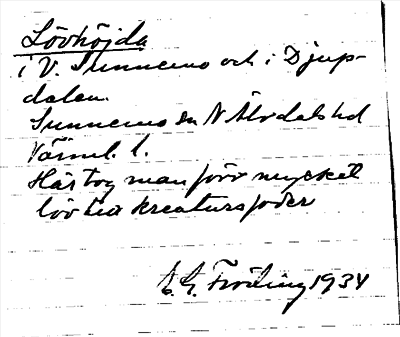 Lövhöjda
i V. Sunnemo och i Djup-
dalen.
Sunnemo sn N Älvdals hd
Värml. l.
Här tog man förr mycket
löv till kreatursfoder
E. G. Fröding 1934